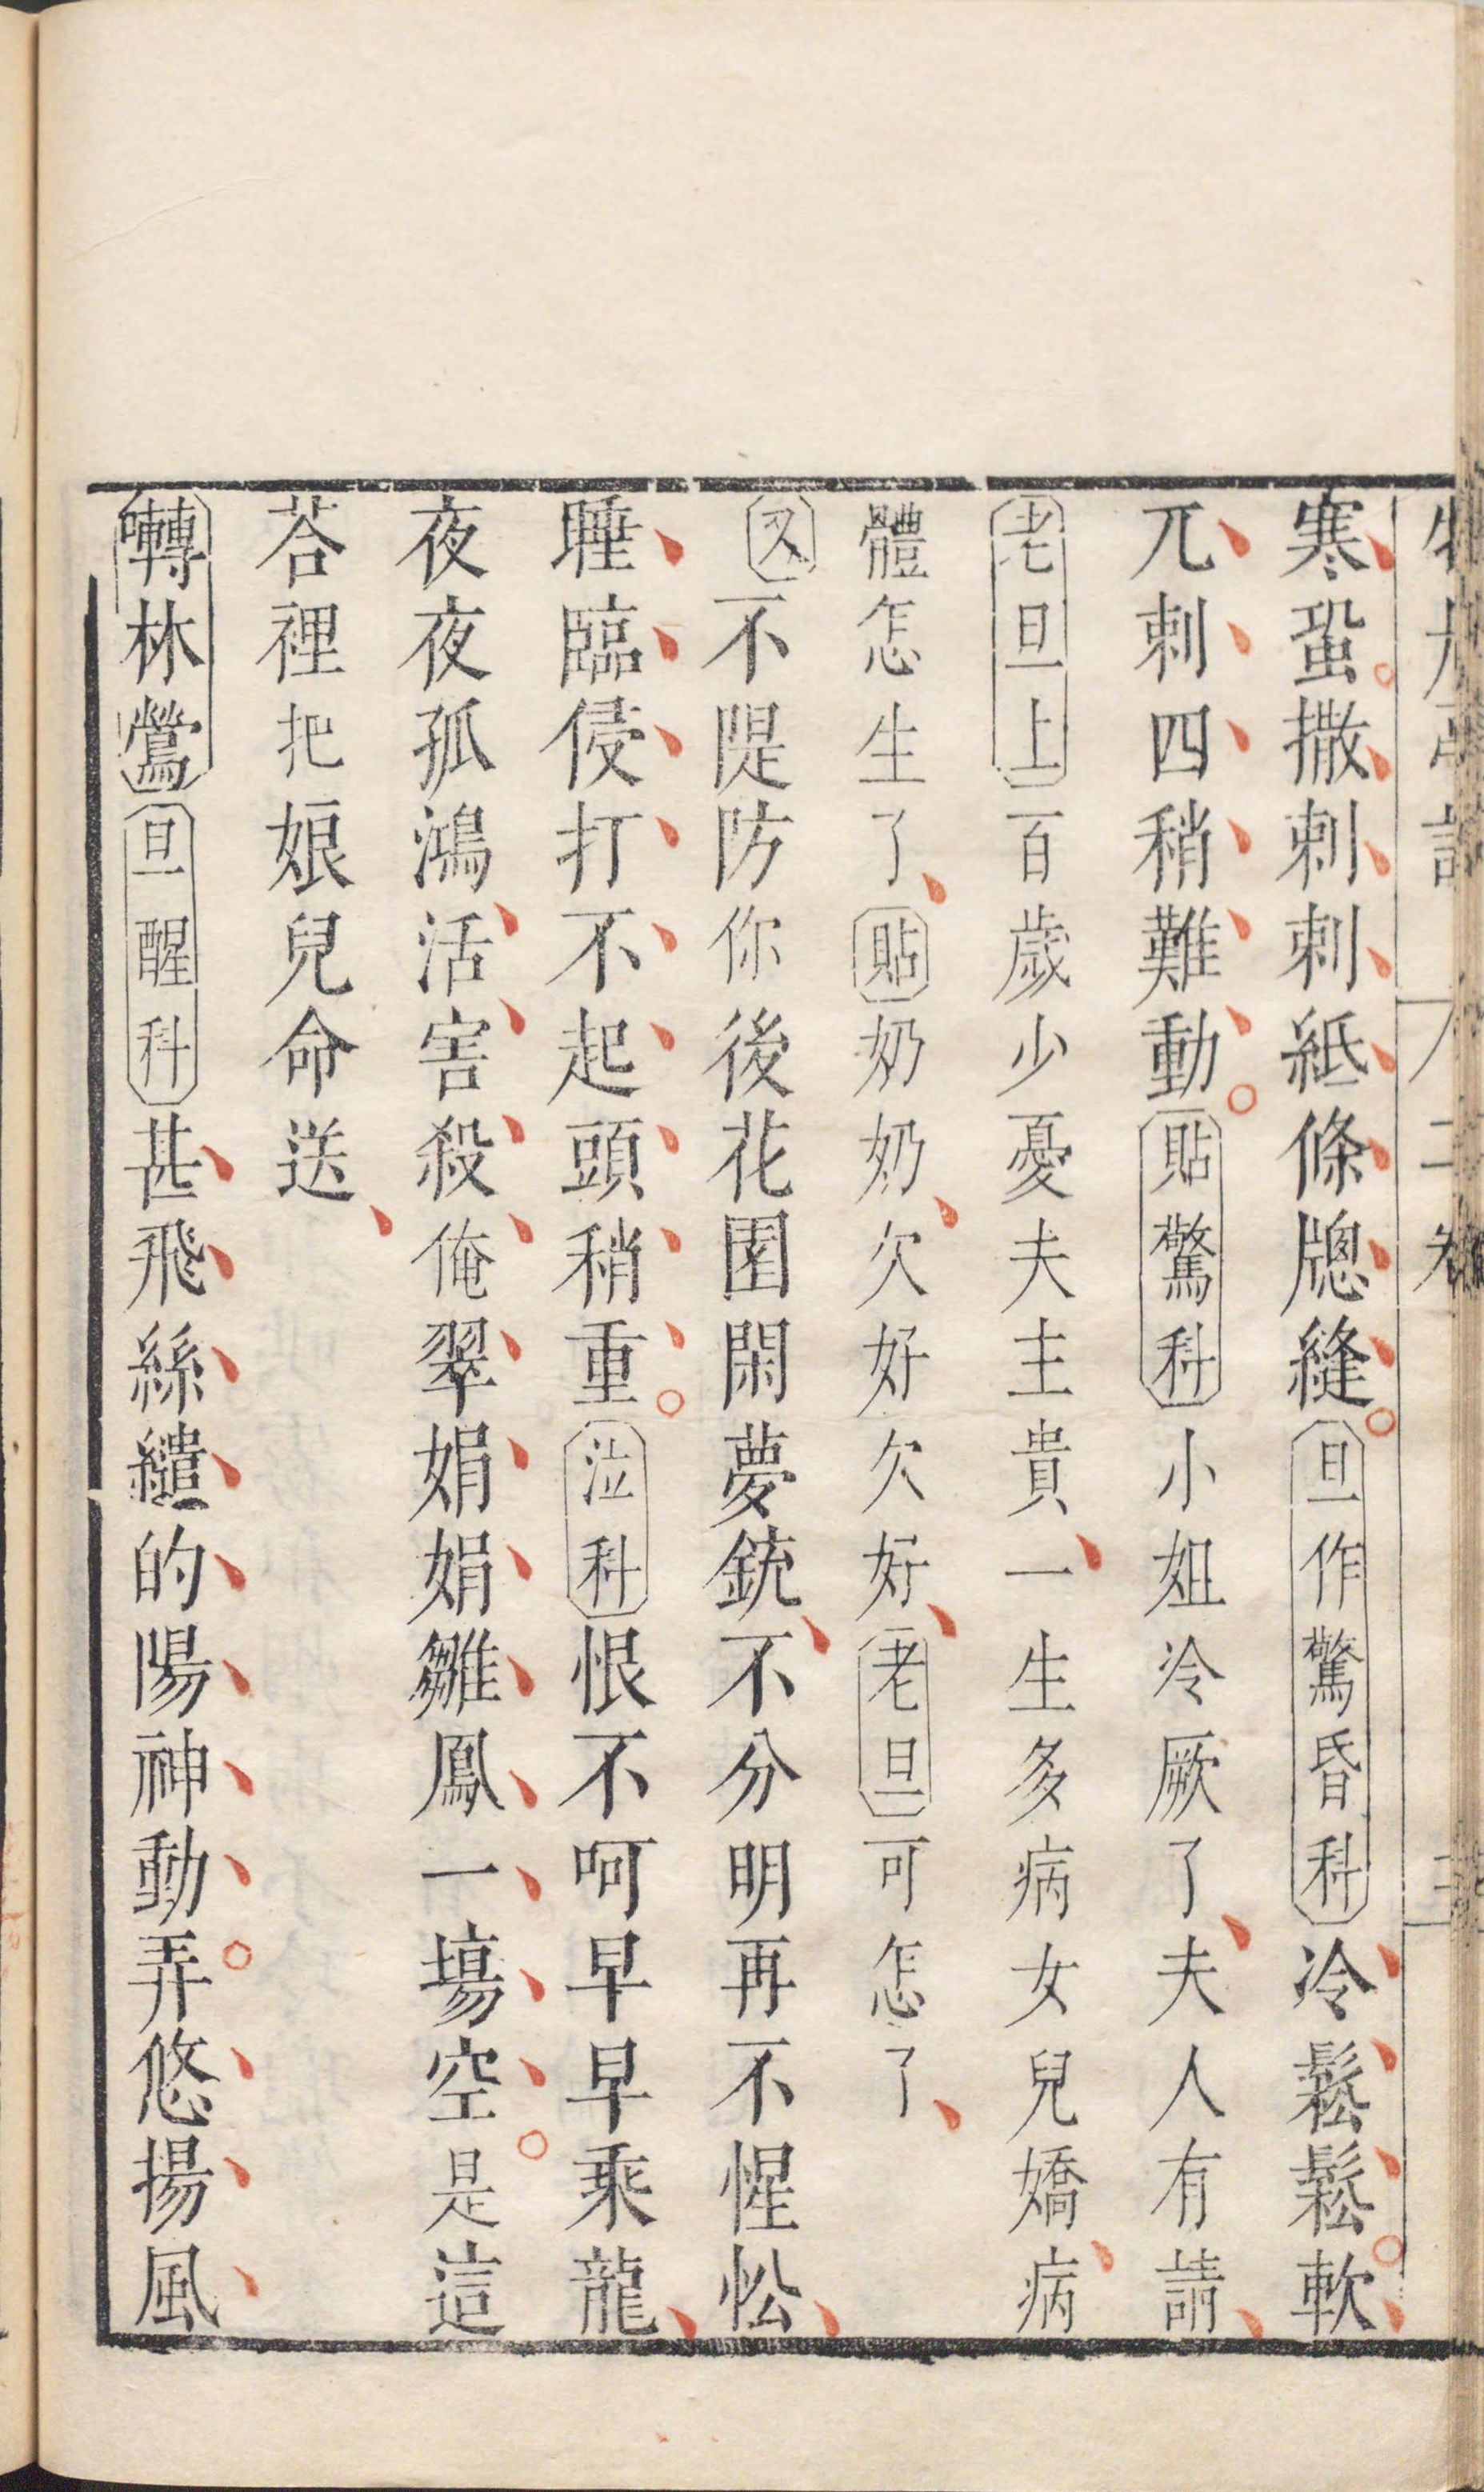 寒蛩撒刺刺紙條牕縫旦作驚昏科冷鬆鬆軟
兀剌四稍難動貼驚科小姐冷厥了夫人有請
老旦上百歲少憂夫主貴一生多病女兒嬌病
體怎生了貼奶奶欠好欠好老旦可怎了
又不隄防你後花園閑夢銃不分明再不惺忪
睡臨侵打不起頭稍重泣科恨不呵早早乘龍
夜夜孤鴻活害殺俺翠娟娟雛鳳一塲空是這
荅裡把娘兒命送
囀林鶯旦醒科甚飛絲繾的陽神動弄悠揚風